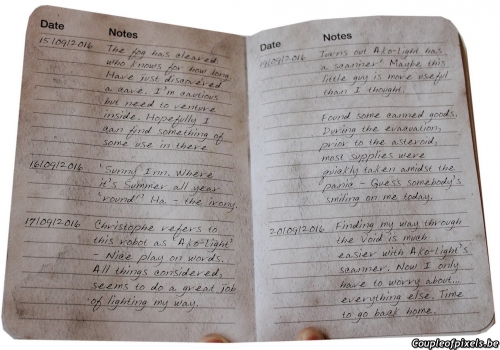 Date Notes
15/09/2016 The fog has cleared,
who knows for how long.
Have just discovered
a cave. I'm cautious
but need to venture
inside. Hopefully I
can find something of
some use in there
16/09/2016 'Sunny Inn. Where
it's Summer all year
'round'! Ha - the irony.
17/09/2016 Christophe refers to
this robot as 'Ako-Light'
- Nice play on words.
All things considered,
seems to do a great job
of lighting my way.
Date Notes
19/09/2016 Turns out Ako-Light has
a scanner! Maybe this
little guy is more useful
than I thought.
Found some canned goods.
During the evacuation,
prior to the asteroid,
most supplies were
quickly taken amidst the
panic - Guess somebody's
smiling on me today.
20/09/2016 Finding my way through
the Void is much
easier with Ako-Light's
scanner. Now I only
have to worry about...
everything else. Time
to go back home.
Coupleofpixels.be